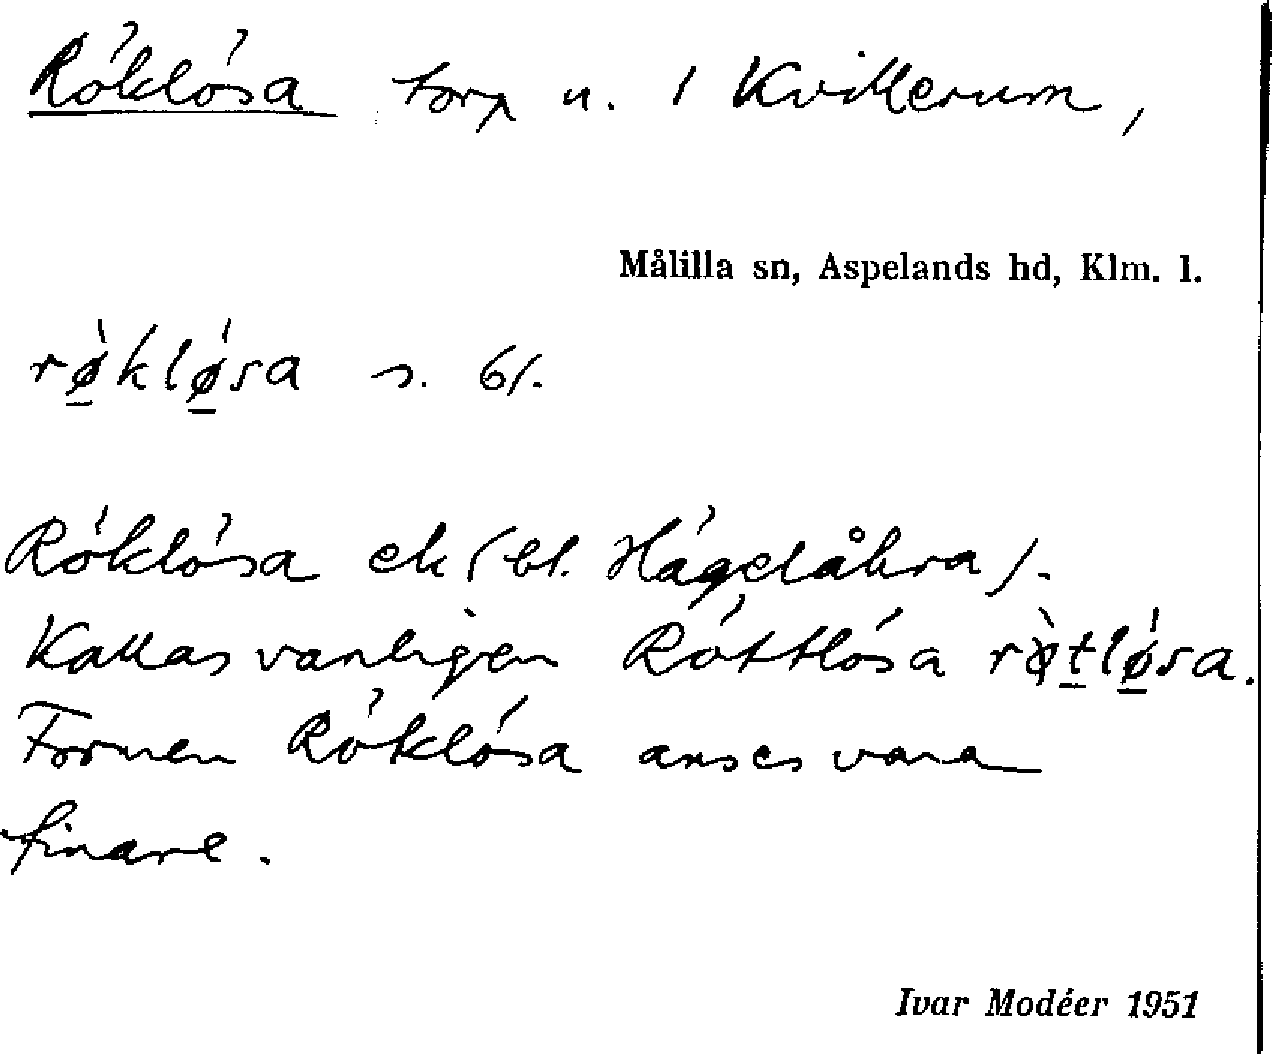 Röklösa torp u. 1 Kvillerum,
Målilla sn, Aspelands hd, Klm. l.
rø̀kløsa s. 61.
Röklösa ek (bl. Hägdåkra).
Kallas vanligen Röttlösa rø̀tløsa.
Formen Röklösa anses vara
finare.
Ivar Modéer 1951